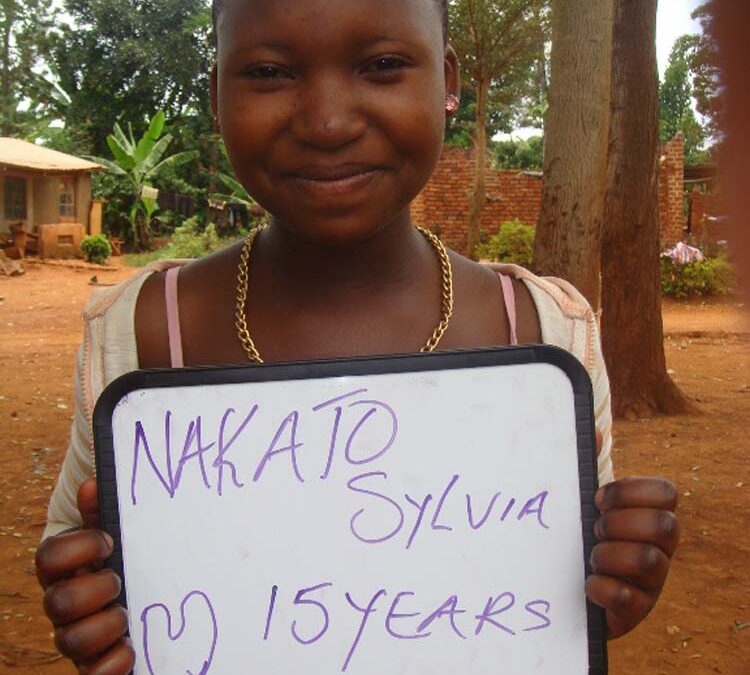 NAKATO
SYLVIA
15 YEARS